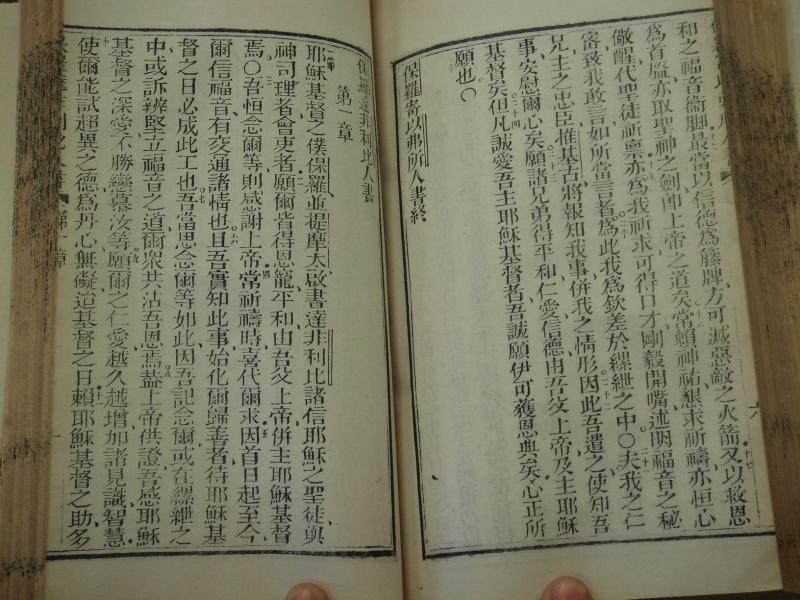 和之福音衞脚最當以信德爲籐牌方可滅惡敵之火箭又以救恩
爲首盔亦取聖神之劍卽上帝之道矣常賴神祐懇求祈禱亦恒心
儆醒代聖徒祈禀亦爲我祈求可得口才剛毅開嘴述明福音之秘
密致我敢言如所當言者爲此我爲欽差於縲絏之中〇夫我之仁
兄主之忠臣推基古將報知我事併我之情形因此吾遣之使知吾
事安慰爾心矣願諸兄弟得平和仁愛信德由吾父上帝及主耶穌
基督矣但凡誠愛吾主耶穌基督者吾誠願伊可獲恩典矣心正所
願也〇
保羅寄以弗所人書終
六
保羅達非利比人書
第一章
耶穌基督之僕保羅並提摩太啟書達非利比諸信耶穌之聖徒與
神司理者會吏者願爾皆得恩寵平和由吾父上帝併主耶穌基督
焉〇吾恒念爾等則感謝上帝常祈禱時喜代爾求因首日起至今
爾信福音有交通諸情也且吾實知此事始化爾歸善者待耶穌基
督之日必成此工也吾當思念爾等如此因吾記念爾或在縲絏之
中或訴辨堅立福音之道爾衆共沾吾恩焉蓋上帝供證吾感耶穌
基督之深愛不勝戀慕汝等願爾之仁愛越久越增加諸見識智慧
使爾能試超異之德爲丹心無礙迨基督之日賴耶穌基督之助多
第一章